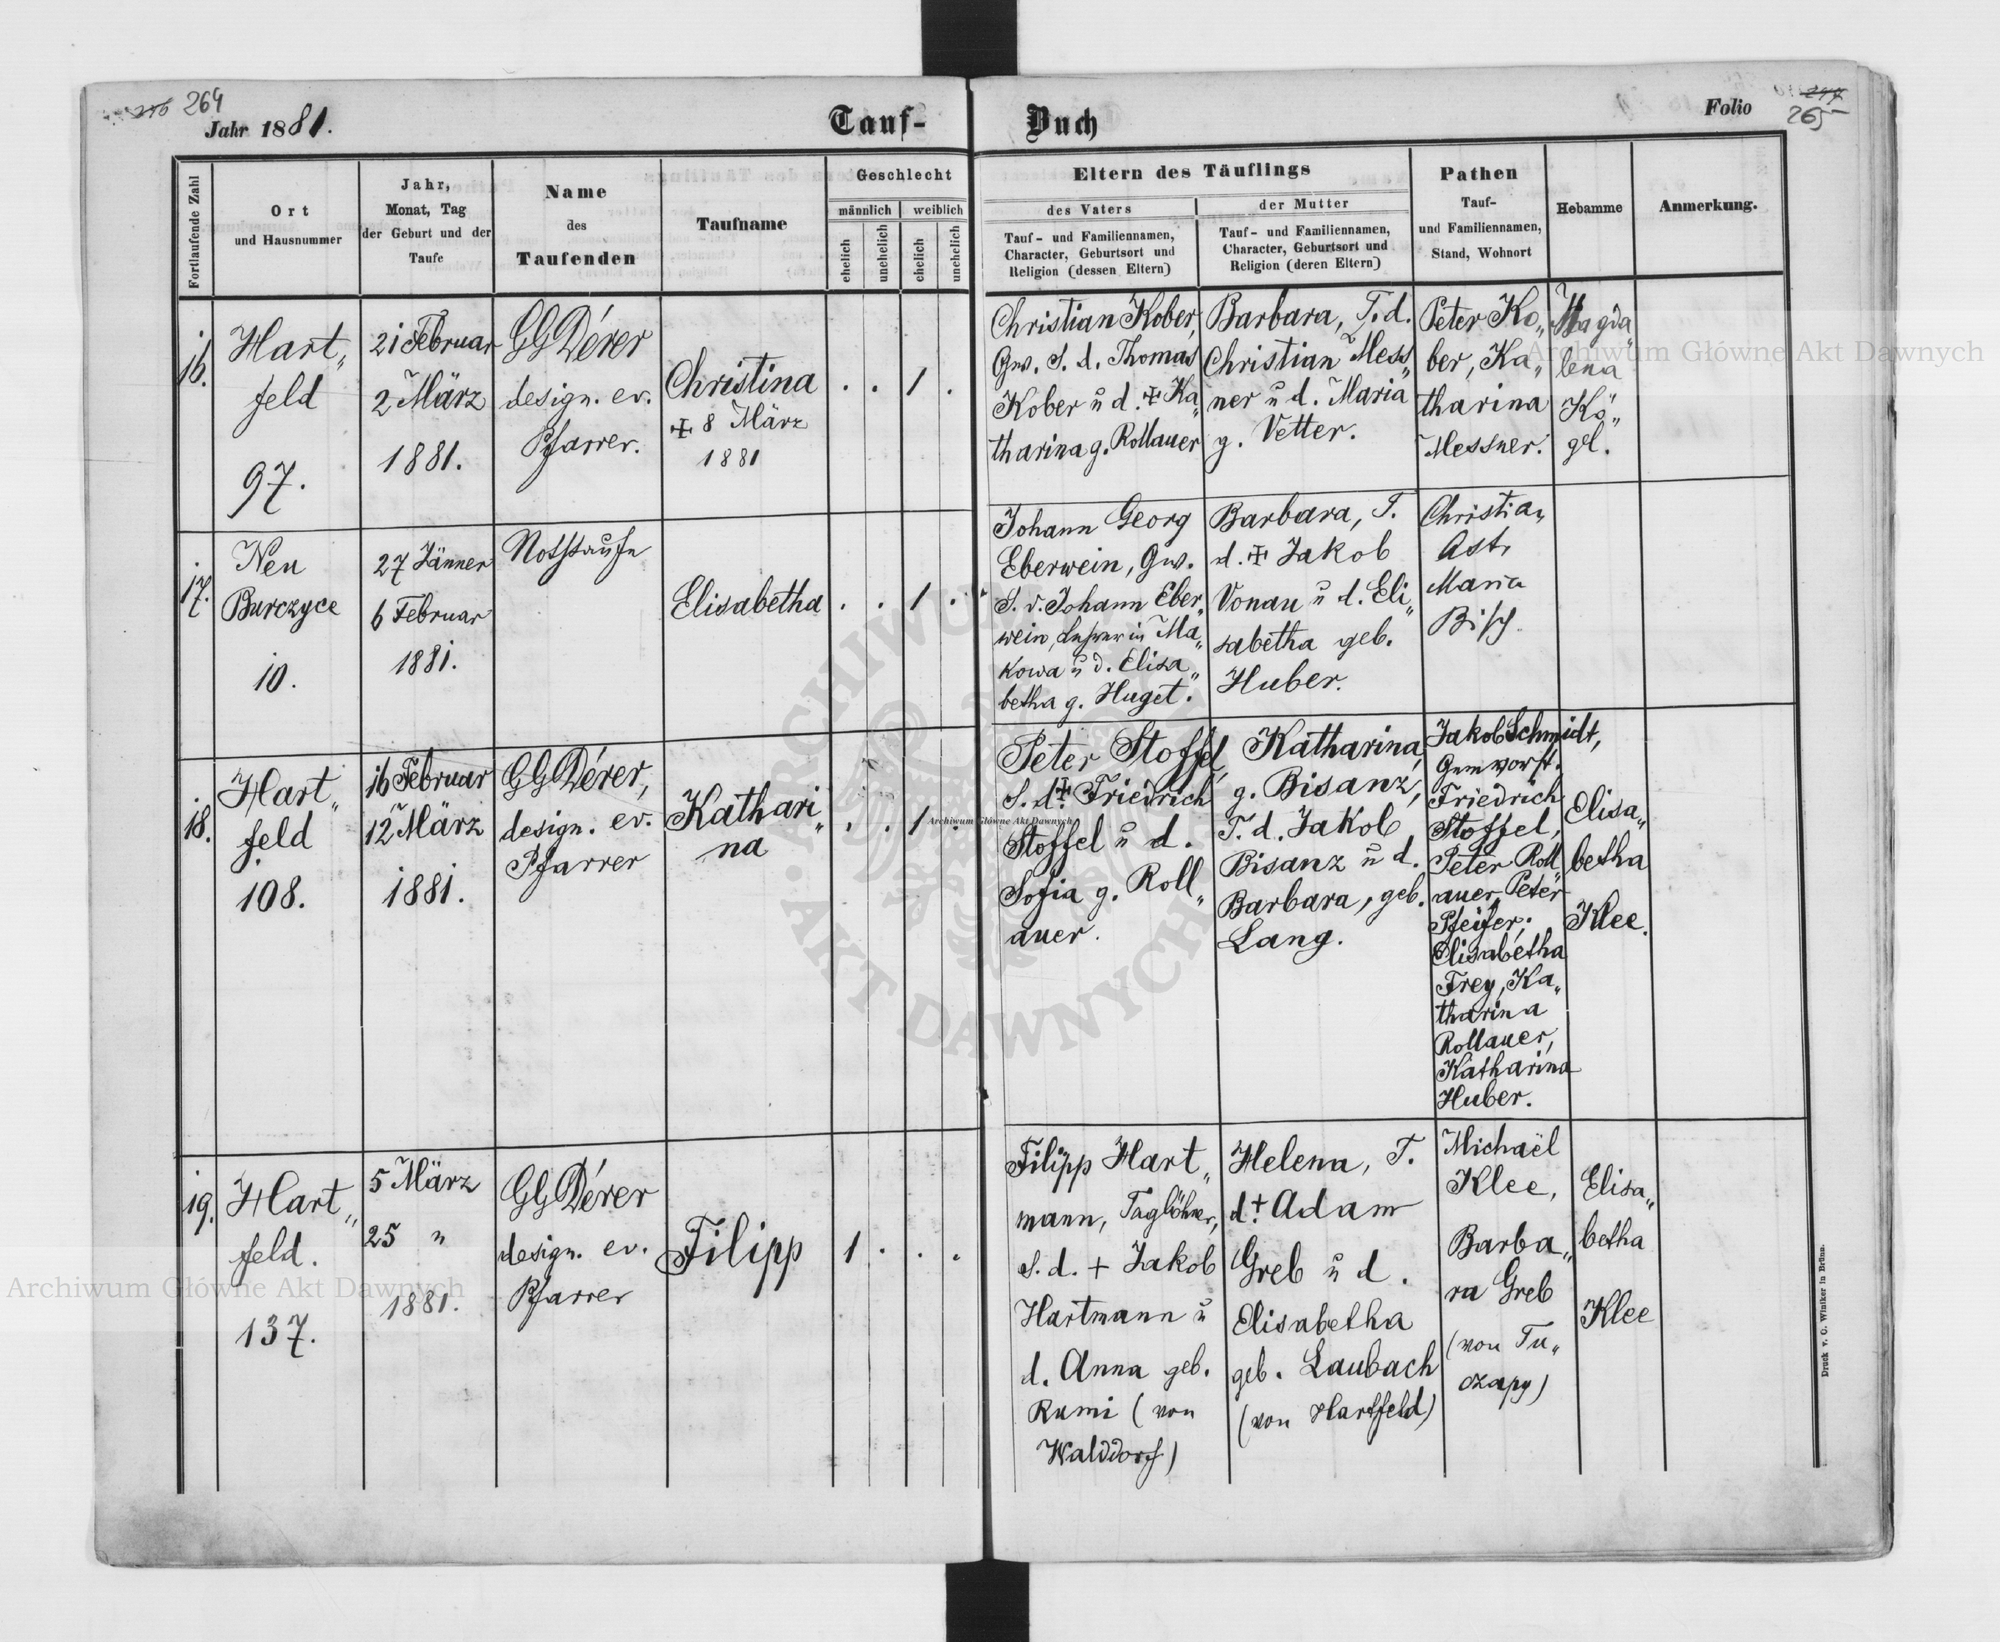 264
Jahr 1881.
Tauf-
Buch
Folio
265
Fortlaufende Zahl
Ort
und Hausnummer
Jahr,
Monat, Tag
der Geburt und der
Taufe
Name
des
Taufenden
Taufname
Geschlecht
männlich
weiblich
ehelich
unehelich
ehelich
unehelich
Eltern des Täuflings
des Vaters
Tauf- und Familiennamen,
Character, Geburtsort und
Religion (dessen Eltern)
der Mutter
Tauf- und Familiennamen,
Character, Geburtsort und
Religion (deren Eltern)
Pathen
Tauf-
und Familiennamen,
Stand, Wohnort
Hebamme
Anmerkung.
16.
Hart„
feld
97.
21 Februar
2 März
1881.
GG Dérer
design. ev.
Pfarrer.
Christina
✠ 8 März
1881
. . 1 .
Christian Kober,
Gw. S. d. Thomas
Kober u d. ✠ Ka„
tharina g. Rollauer
Barbara, T. d.
Christian Mess„
ner u d. Maria
g. Vetter.
Peter Ko„
ber, Ka„
tharina
Messner.
Magda„
lena
Kö„
gel.
17.
Neu
Burczyce
10.
27 Jänner
6 Februar
1881.
Nothtaufe
Elisabetha
. . 1 .
Johann Georg
Eberwein, Gw.
S. d. Johann Eber„
wein, Lehrer in Ma„
kowa u d. Elisa„
betha g. Huget.
Barbara, T.
d. ✠ Jakob
Vonau u d. Eli„
sabetha geb.
Huber.
Christian
Ast,
Maria
Bisch.
18.
Hart„
feld
108.
16 Februar
12 März
1881.
GG Dérer,
design. ev.
Pfarrer
Kathari„
na
. . 1 .
Peter Stoffel,
S. d. ✠ Friedrich
Stoffel u d.
Sofia g. Roll„
auer.
Katharina,
g. Bisanz,
T. d. Jakob
Bisanz u d.
Barbara, geb.
Lang.
Jakob Schmidt,
Gemvorst.
Friedrich
Stoffel,
Peter Roll„
auer, Peter
Pfeifer;
Elisabetha
Frey, Ka„
tharina
Rollauer,
Katharina
Huber.
Elisa„
betha
Klee.
19.
Hart„
feld.
137.
5 März
25 "
1881.
GG Dérer
design. ev.
Pfarrer
Filipp
1 . . .
Filipp Hart„
mann, Taglöhner,
S. d. + Jakob
Hartmann u
d. Anna geb.
Rumi (von
Walddorf)
Helena, T.
d. + Adam
Greb u d.
Elisabetha
geb. Laubach
(von Hartfeld)
Michaël
Klee,
Barba„
ra Greb
(von Tu„
czapy)
Elisa„
betha
Klee
Druck v. C. Winiker in Brünn.
Archiwum Główne Akt Dawnych
Archiwum Główne Akt Dawnych
Archiwum Główne Akt Dawnych
ARCHIWUM
AKT DAWNYCH